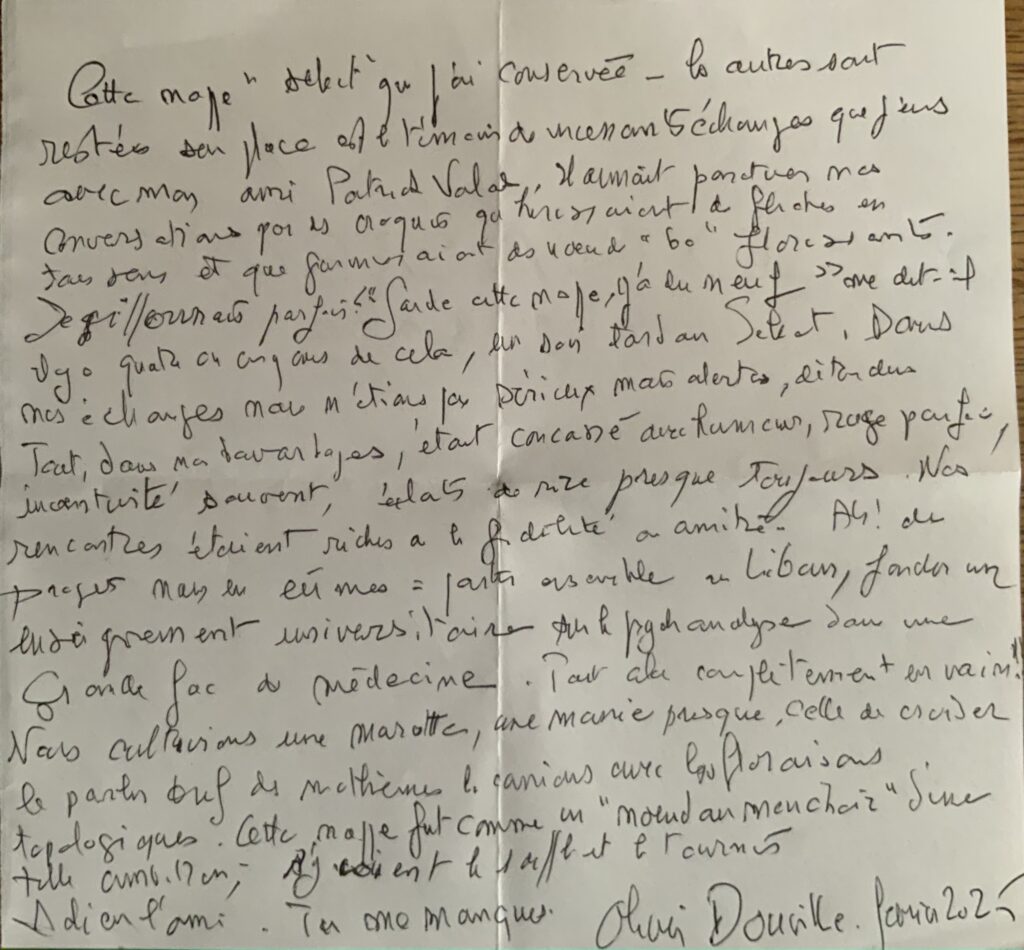 Cette nappe "select" que j'ai conservée – les autres sont
restées sur place est le témoin de incessants échanges que j'eus
avec mon ami Patrick Valas, il aimait ponctuer nos
conversations par des croquis qu' de flèches en
tous sens et que garnissaient des nœuds "bo" florissants.
parfois. "Garde cette nappe, y'a du neuf" me dit-il
il y a quatre ou cinq ans de cela, un soir tard au Select. Dans
nos échanges nous n'étions pas sérieux mais alertes, détendus
Tout, dans nos bavardages, était concassé avec humeur, rage parfois,
incongruité souvent, éclats de rire presque toujours. Nos
rencontres étaient riches de la fidélité en amitié. Ah! des
projets nous en eûmes = partir ensemble au Liban, fonder un
enseignement universitaire sur la psychanalyse dans une
Grande fac de médecine. Tout cela complètement en vain!
Nous cultivions une marotte, une manie presque, celle de croiser
le parler bref des mathèmes lacaniens avec les floraisons
topologiques. Cette nappe fut comme un "nœud au mouchoir" d'une
telle ambition, le souffle et le tournis
Adieu l'ami. Tu me manques. Olivier Douville. février 2025